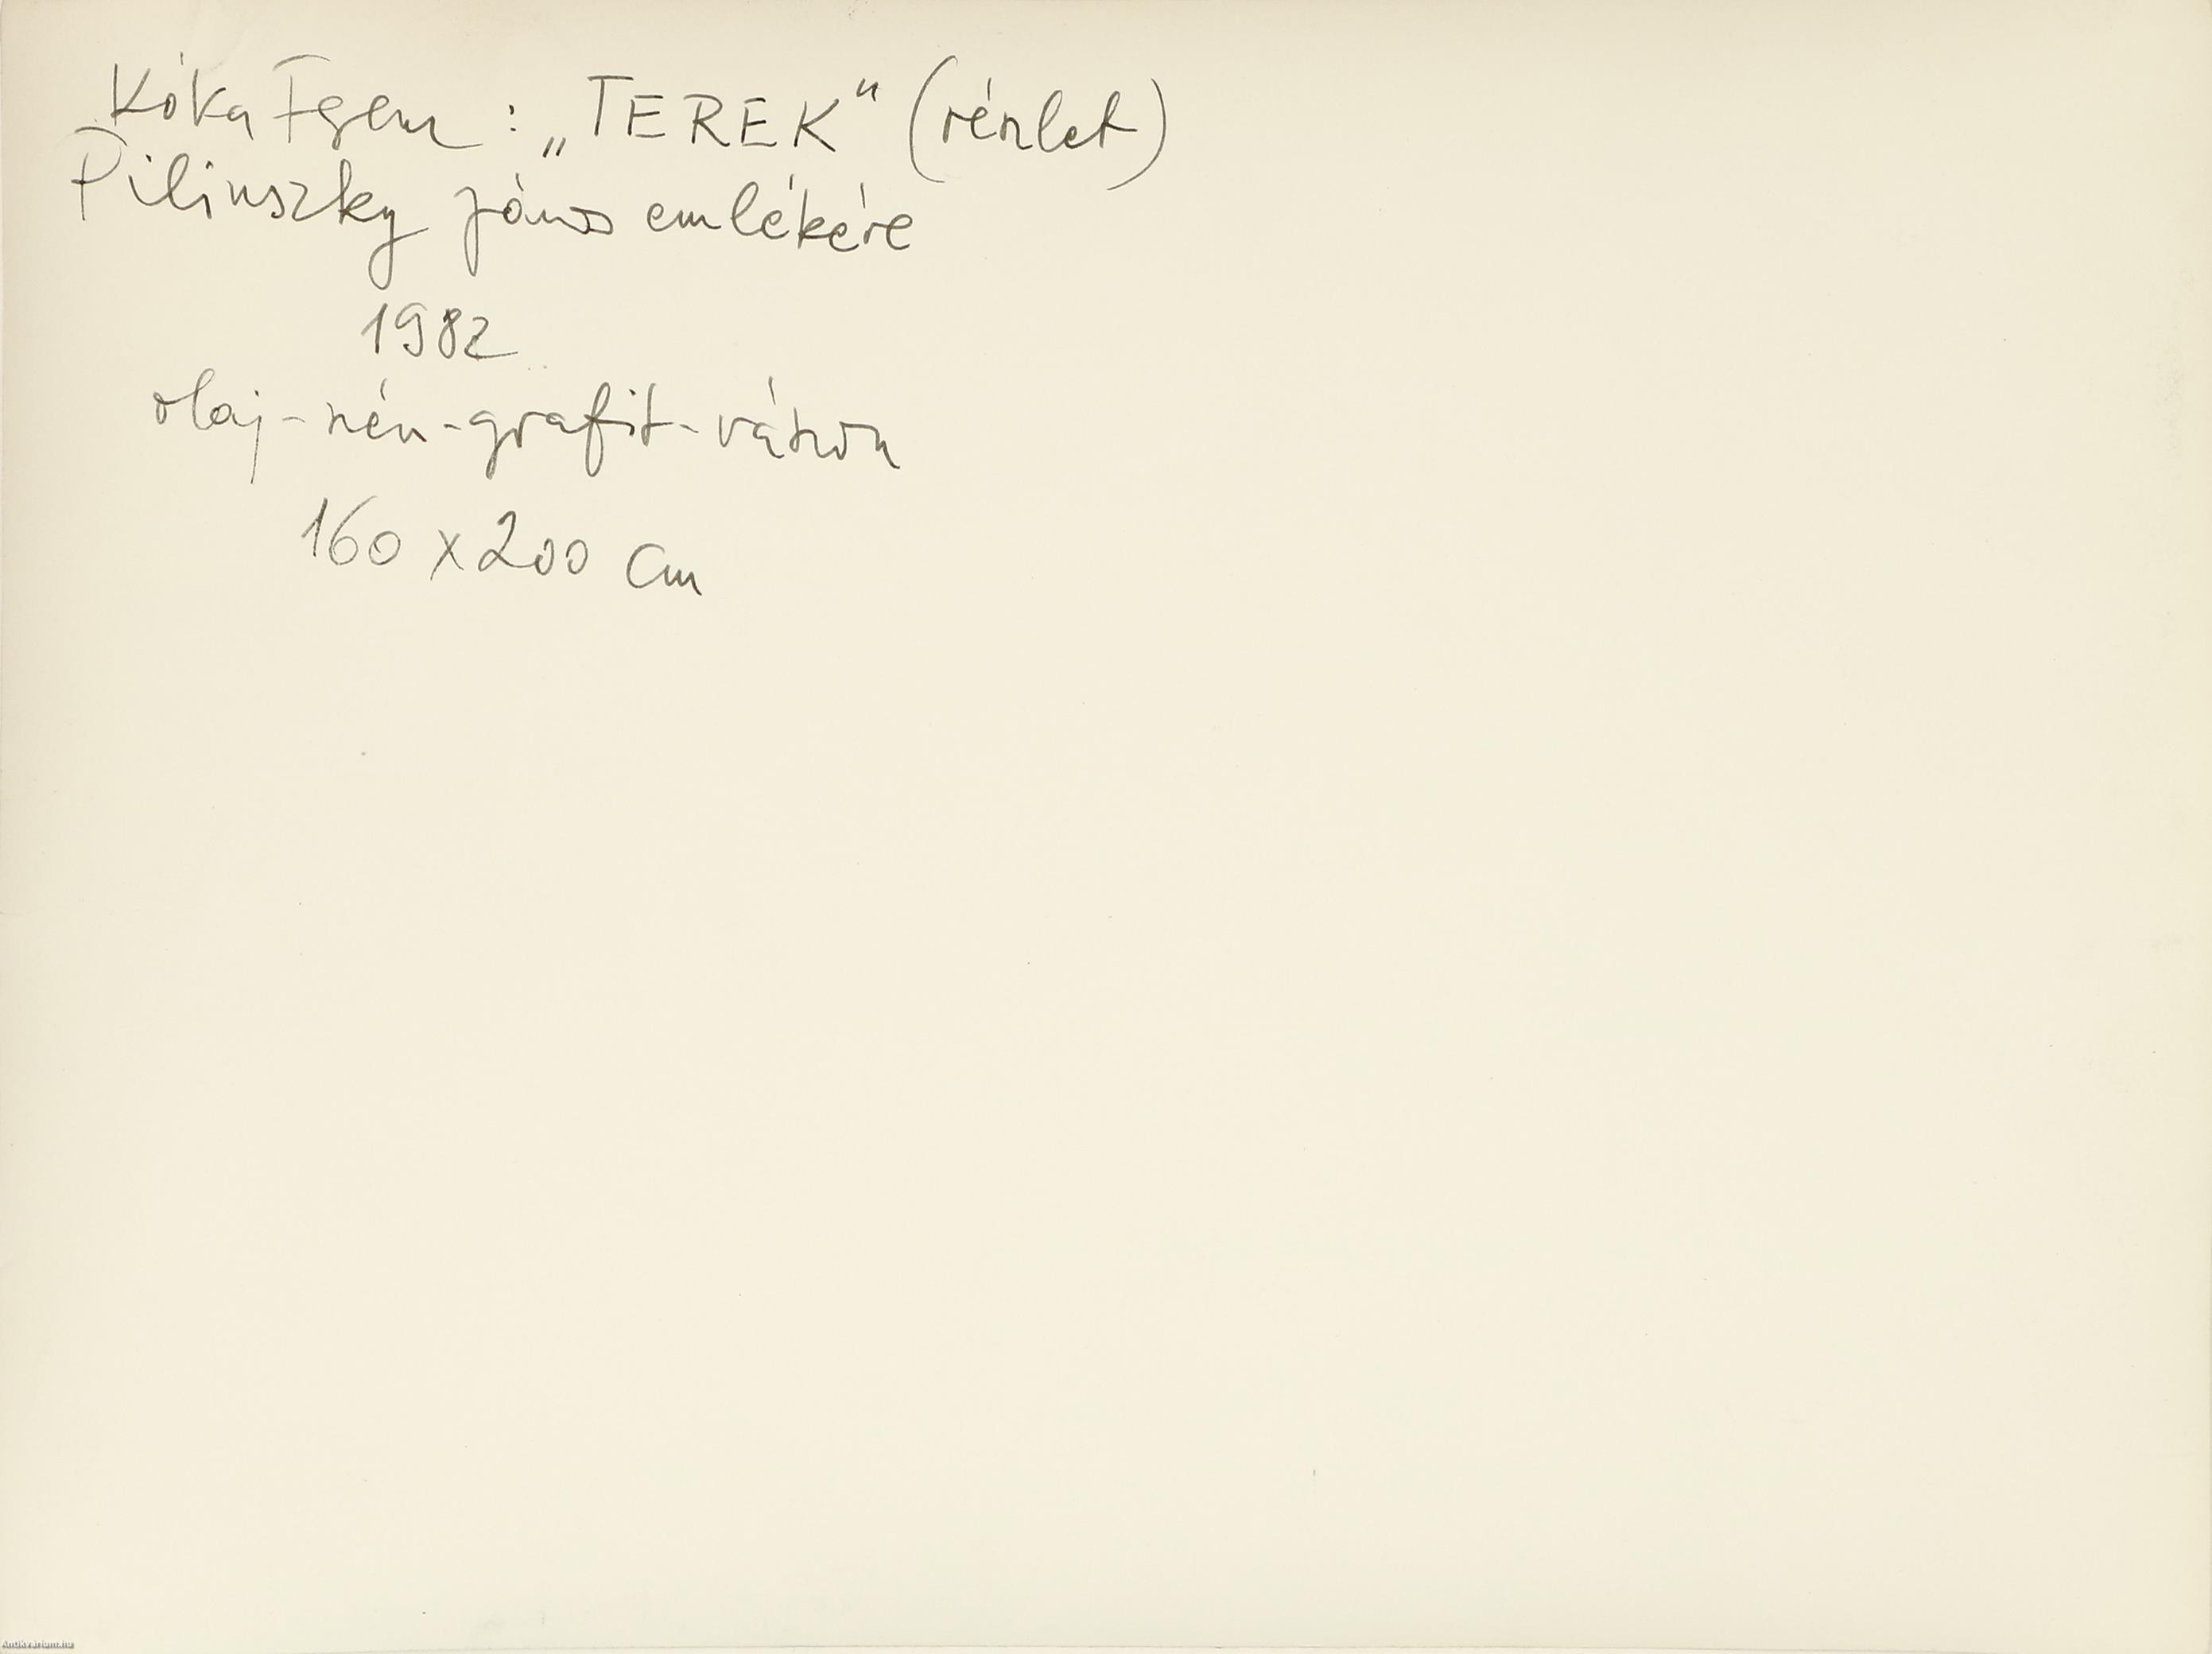 Kóka Ferenc : „TEREK“ (részlet)
Pilinszky János emlékére
1982
olaj-szén-grafit-vászon
160 x 200 cm
Antikvárium.hu